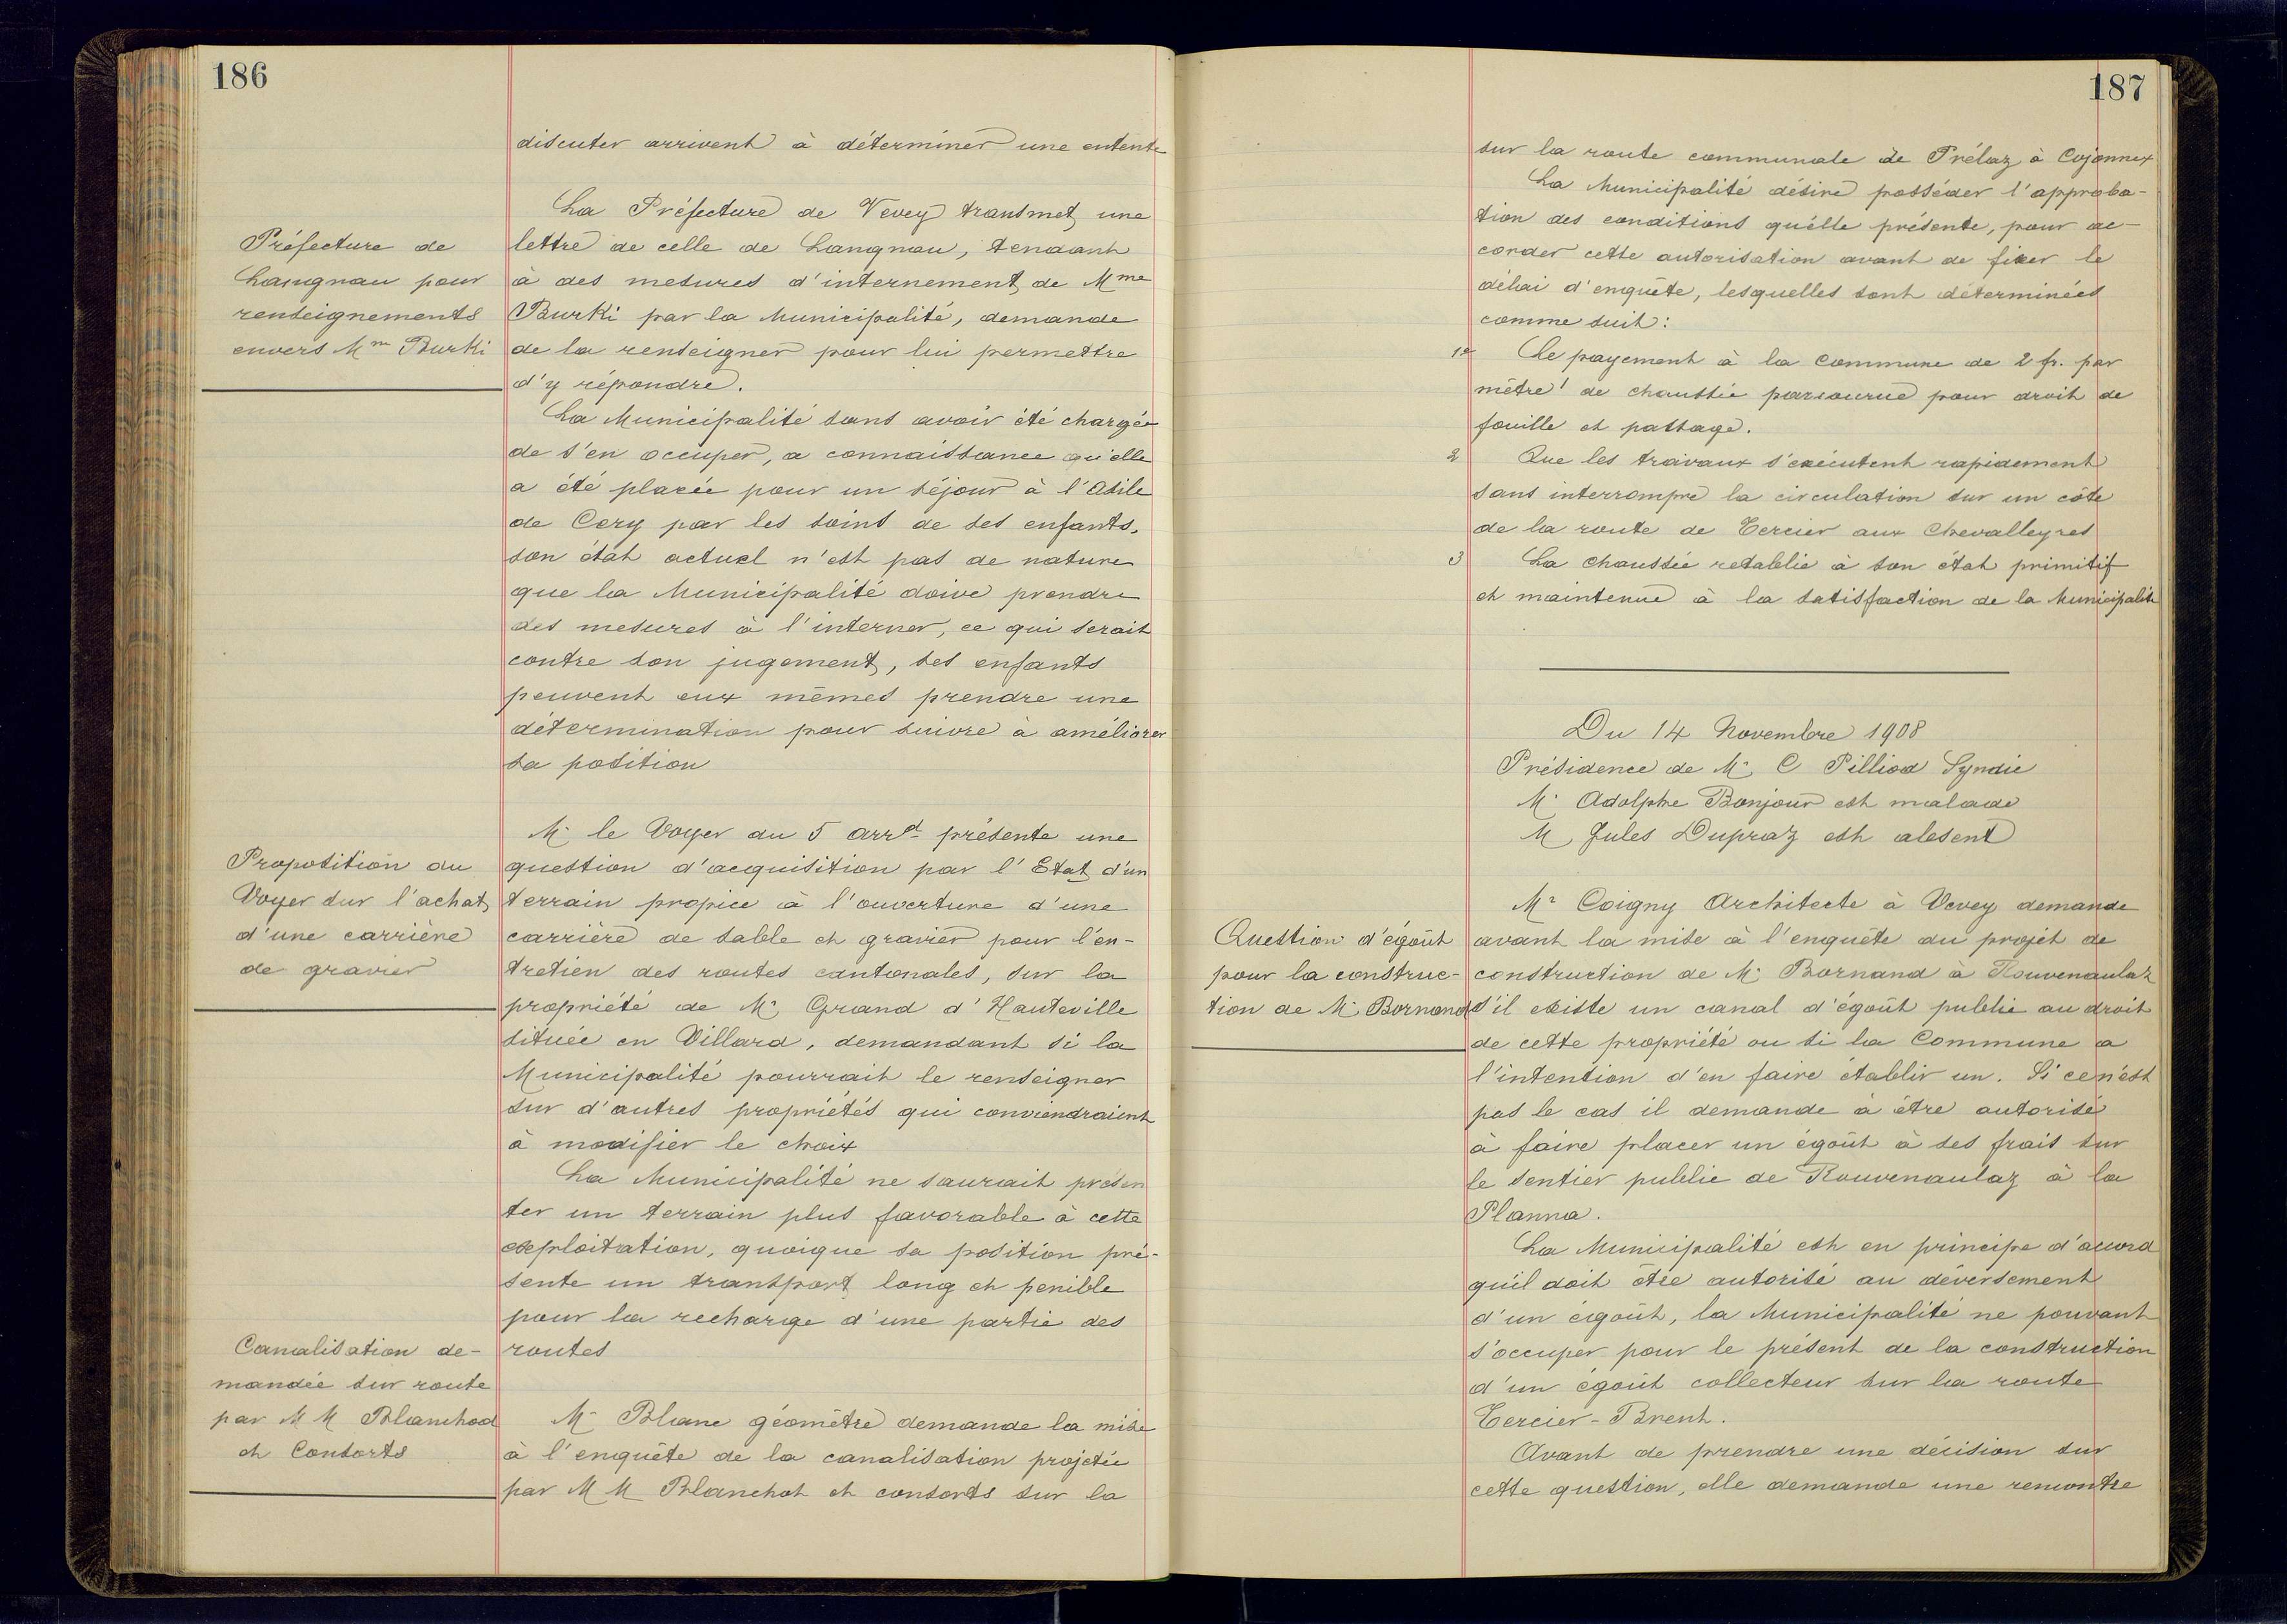 186
discuter arrivent à déterminer une entente
Préfecture de
Langnau pour
renseignements
envers Mme Burki
La Préfecture de Vevey transmet une
lettre de celle de Langnau, tendant
à des mesures d'internement de Mme
Burki par la Municipalité, demande
de la renseigner pour lui permettre
d'y répondre.
La Municipalité sans avoir été chargée
de s'en occuper, a connaissance qu'elle
a été placée pour un séjour à l'Asile
de Cery par les soins de ses enfants,
son état actuel n'est pas de nature
que la Municipalité doive prendre
des mesures à l'interner, ce qui serait
contre son jugement, ses enfants
peuvent eux mêmes prendre une
détermination pour suivre à améliorer
sa position
Proposition du
Voyer sur l'achat
d'une carrière
de gravier
Mr le Voyer du 5 arrdt présente une
question d'acquisition par l'Etat d'un
terrain propice à l'ouverture d'une
carrière de sable et gravier pour l'en-
tretien des routes cantonales, sur la
propriété de Mr Grand d'Hauteville
située en Villard, demandant si la
Municipalité pourrait le renseigner
sur d'autres propriétés qui conviendraient
à modifier le choix
La Municipalité ne saurait présen
ter un terrain plus favorable à cette
exploitation, quoique sa position pré-
sente un transport long et penible
pour la recharge d'une partie des
routes
Canalisation de-
mandée sur route
par M M Blanchod
et Consorts
Mr Blanc géomètre demande la mise
à l'enquête de la canalisation projetée
par M M Blanchot et consorts sur la
187
sur la route communale de Prélaz à Cojonnex
La Municipalité désire posséder l'approba-
tion des conditions qu'elle présente, pour ac-
corder cette autorisation avant de fixer le
délai d'enquête, lesquelles sont déterminées
comme suit:
1o Le payement à la Commune de 2 fr. par
mètre l de chaussée parcourue pour droit de
fouille et passage.
2 Que les travaux s'exécutent rapidement
sans interrompre la circulation sur un côté
de la route de Tercier aux Chevalleyres
3 La chaussée retablie à son état primitif
et maintenue à la satisfaction de la Municipalité
Du 14 Novembre 1908
Présidence de Mr C Pilliod Syndic
Mr Adolphe Bonjour est malade
M Jules Dupraz est absent
Question d'égoût
pour la construc-
tion de Mr Bornand
Mr Coigny Architecte à Vevey demande
avant la mise à l'enquête du projet de
construction de Mr Bornand à Rouvenaulaz
s'il existe un canal d'égoût public au droit
de cette propriété ou si la Commune a
l'intention d'en faire établir un. Si ce n'est
pas le cas il demande à être autorisé
à faire placer un égoût à ses frais sur
le sentier public de Rouvenaulaz à la
Planna.
La Municipalité est en principe d'accord
qu'il doit être autorisé au déversement
d'un égoût, la Municipalité ne pouvant
s'occuper pour le présent de la construction
d'un égoût collecteur sur la route
Tercier-Brent.
Avant de prendre une décision sur
cette question, elle demande une remontre